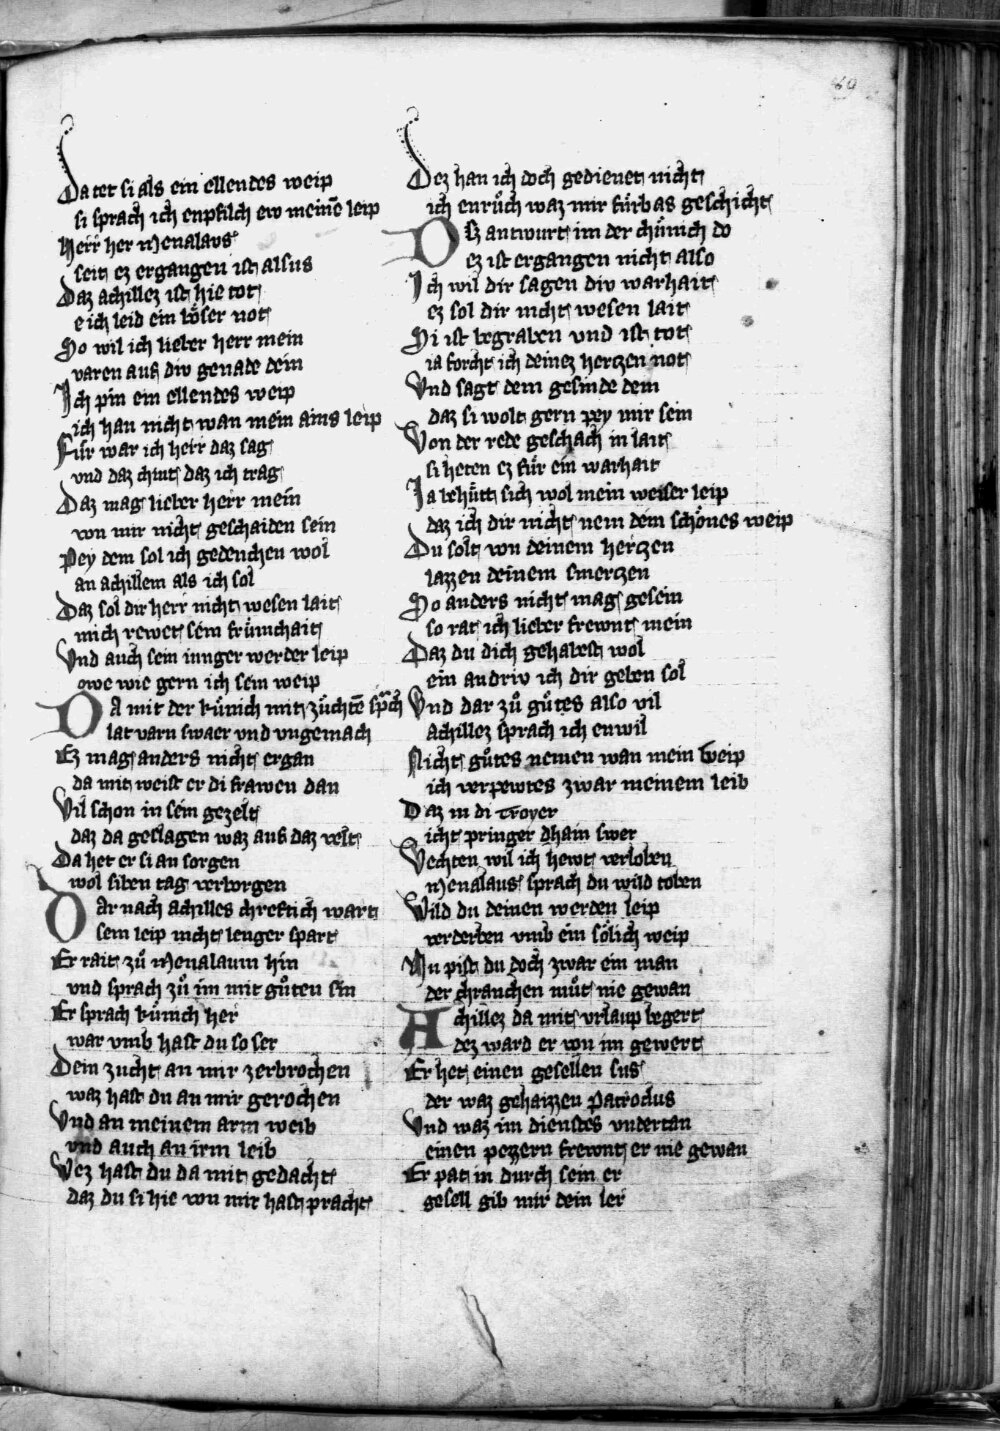 69
Da tet si als ein ellendes weip
si sprach ich enpfilch ew meinē leip
Herr her Menalaus
seit ez ergangen ist alsus
Daz achillez ist hie tot
e ich leid ein böser not
So wil ich lieber herr mein
varen auf div genade dein
Ich pin ein ellendes weip
ich han nicht wan mein ains leip
Für war ich herr daz sag
vnd daz chint daz ich trag
Daz mag lieber herr mein
von mir nicht geschaiden sein
Pey dem sol ich gedenchen wol
an achillem als ich sol
Daz sol dir herr nicht wesen lait
mich rewet sein frümchait
Vnd auch sein iunger werder leip
owe wie gern ich sein weip
DA mit der künich mit züchtē sprach
lat varn swaer vnd vngemach
Ez mag anders nicht ergan
da mit weist er di frawen dan
Vil schon in sein gezelt
daz da geslagen waz auf daz velt
Da het er si an sorgen
wol siben tag verborgen
Dar nach achilles chreftich wart
sein leip nicht lenger spart
Er rait zů Menalaum hin
vnd sprach zů im mit gůten sin
Er sprach künich her
war vmb hast du so ser
Dein zucht an mir zerbrochen
waz hast du an mir gerochen
Vnd an meinem arm weib
vnd auch an irm leib
Wez hast du da mit gedacht
daz du si hie von mir hast pracht
Dez han ich doch gedienet nicht
ich enrůch waz mir fürbas geschicht
Dez antwurt im der chünich do
ez ist ergangen nicht also
Ich wil dir sagen div warhait
ez sol dir nicht wesen lait
Si ist begraben vnd ist tot
ia forcht ich deinez herczen not
Vnd sagt dem gesinde dem
daz si wolt gern pey mir sein
Von der rede geschach in lait
si heten ez für ein warhait
Ja behütt sich wol mein weiser leip
daz ich dir nicht nem dein schönes weip
Du solt von deinem herczen
lazzen deinem smerczen
So anders nicht mag gesein
so rat ich lieber frewnt mein
Daz du dich gehabest wol
ein andriv ich dir geben sol
Vnd dar zů gůtes also vil
achillez sprach ich enwil
Nicht gůtes nemen wan mein weip
ich verpewtes zwar meinem leib
Daz in di Troyer
icht pringer dhain swer
Vechten wil ich hewt verloben
Menalaus sprach du wild toben
Wild du deinen werden leip
verderben vmb ein sölich weip
Nu pist du doch zwar ein man
der chranchen můt nie gewan
Achillez da mit vrlaup begert
dez ward er von im gewert
Er het einen gesellen sus
der waz gehaizzen Patroclus
Vnd waz im dienstes vndertan
einen pezzern frewnt er nie gewan
Er pat in durch sein er
gesell gib mir dein ler